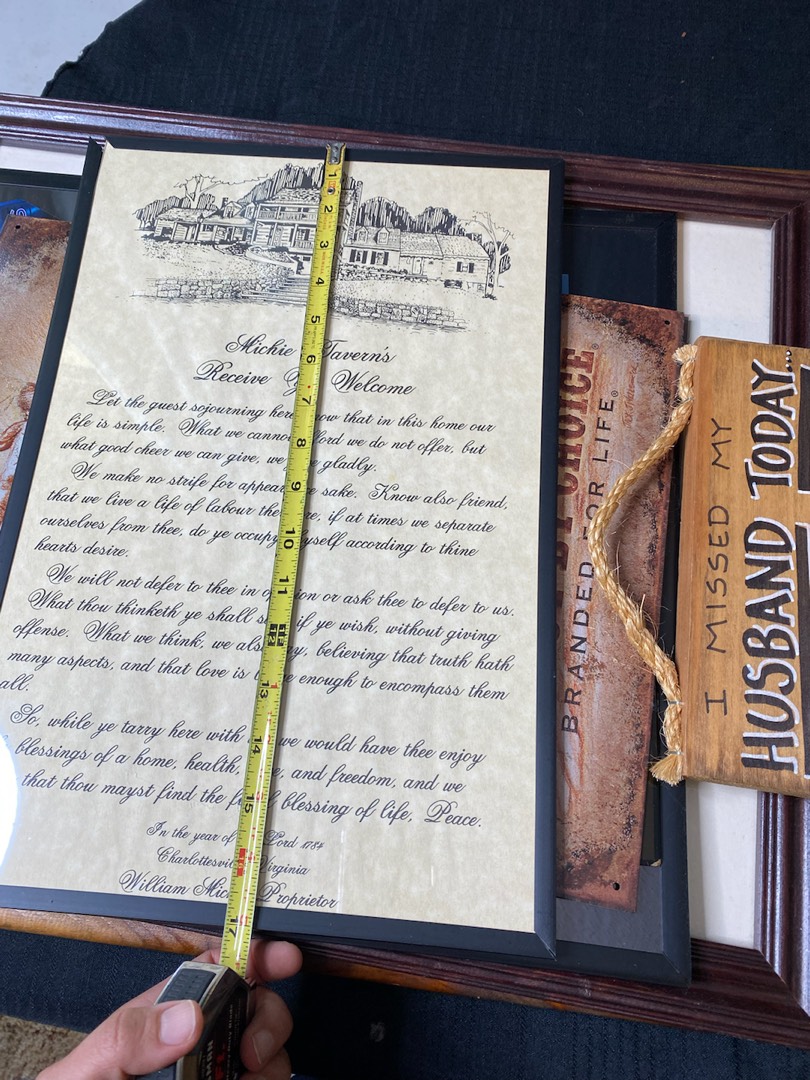 Michie Tavern's
Receive Welcome
Let the guest sojourning here know that in this home our
life is simple. What we cannot afford we do not offer, but
what good cheer we can give, we give gladly.
We make no strife for appearance sake. Know also friend,
that we live a life of labour therefore, if at times we separate
ourselves from thee, do ye occupy thyself according to thine
hearts desire.
We will not defer to thee in opinion or ask thee to defer to us.
What thou thinketh ye shall say if ye wish, without giving
offense. What we think, we also say, believing that truth hath
many aspects, and that love is large enough to encompass them
all.
So, while ye tarry here with us we would have thee enjoy
blessings of a home, health, love, and freedom, and we
that thou mayst find the final blessing of life, Peace.
In the year of our Lord 1784
Charlottesville, Virginia
William Michie Proprietor
1
2
3
4
5
6
7
8
9
10
11
12
13
14
15
17
BY CHOICE
BRANDED FOR LIFE®
I MISSED MY
HUSBAND TODAY...